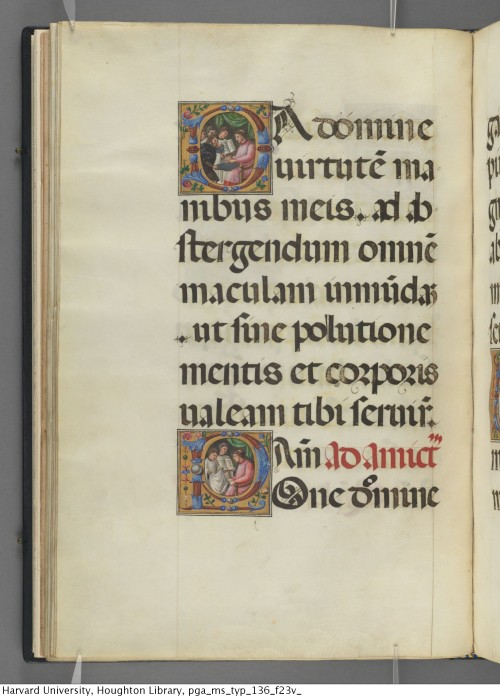 DA domine
uirtutē ma
nibus meis. ad ab
stergendum omnē
maculam inmūdaꝫ
.ut sine pollutione
mentis et corporis
ualeam tibi seruir̄.
Am̄ Ad amictᷟ
POne domine
Harvard University, Houghton Library, pga_ms_typ_136_f23v_